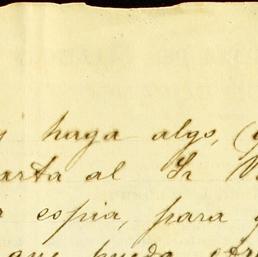 haga algo, (
arta al Sr
copia, para
que pueda